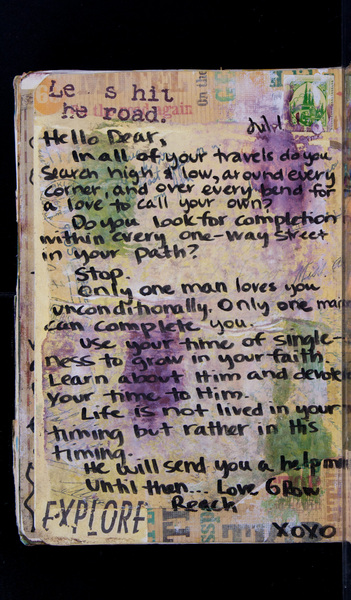 Le s hit
he road.
the road again
On the
child
Hello Dear,
In all of your travels do you
search high & low, around every
corner and over every bend for
a love to call your own?
Do you look for completion
within every one-way street
in your path?
Stop.
Only one man loves you
unconditionally. Only one man
can complete you.
Use your time of single-
ness to grow in your faith.
Learn about Him and devote
your time to Him.
Life is not lived in your
timing but rather in His
timing.
He will send you a help
Until then... Love Grow
Reach
EXPLORE
XOXO